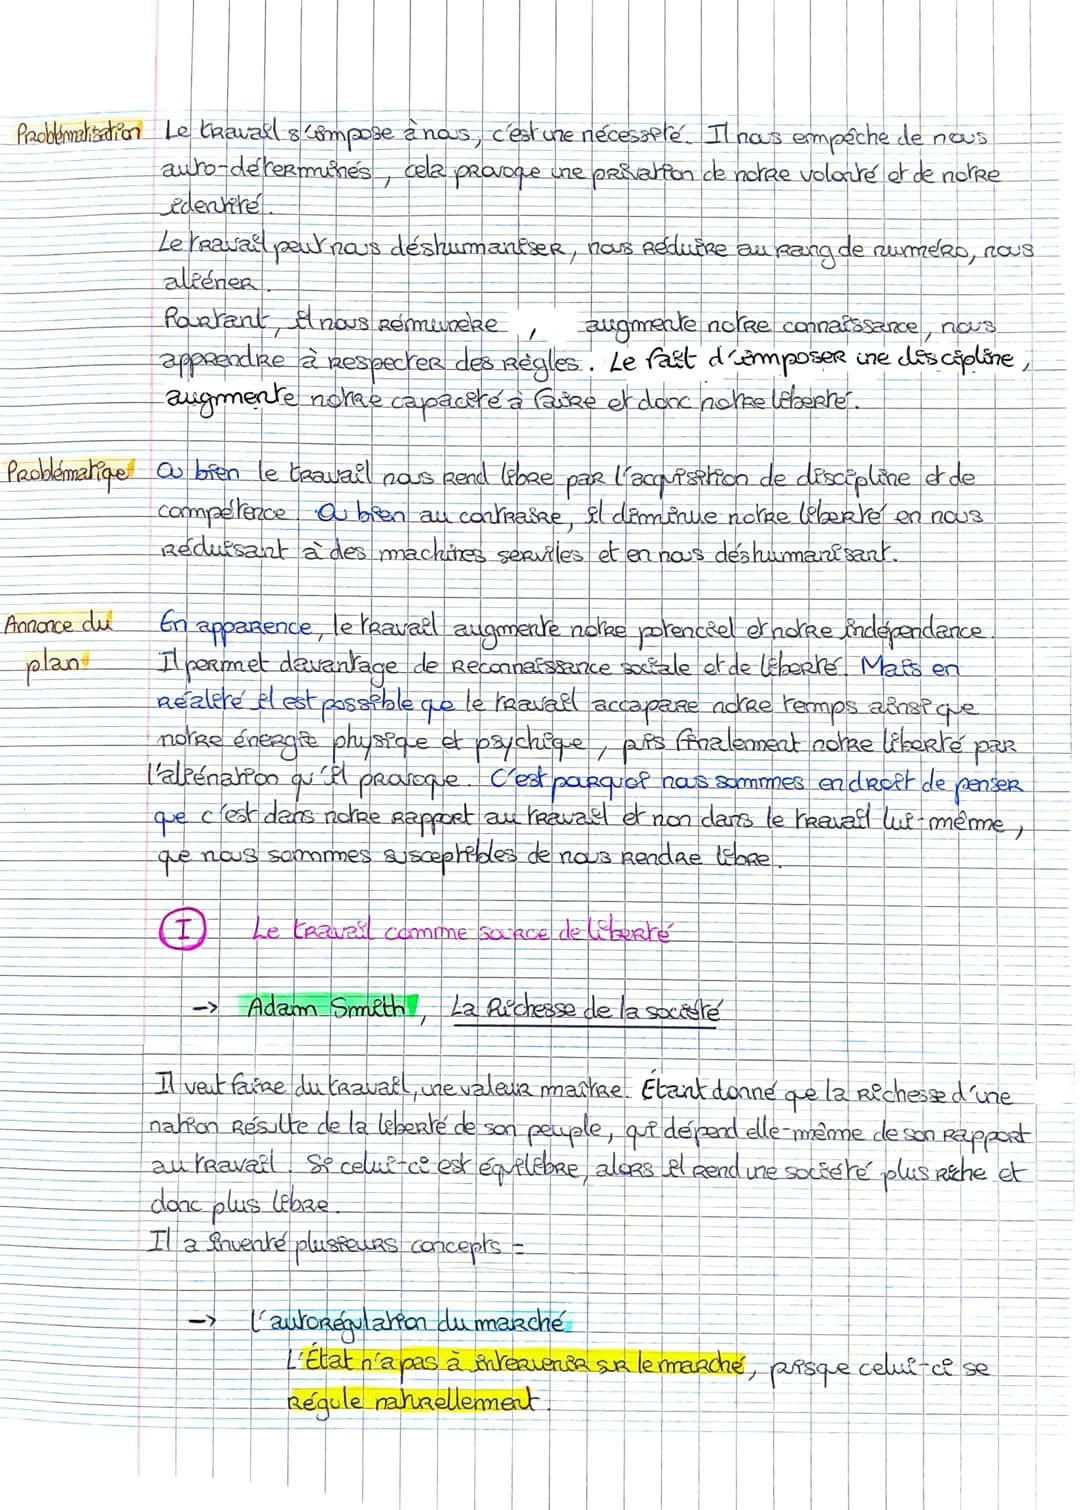 Problématisation Le travail s'impose à nous, c'est une nécessité. Il nous empêche de nous
auto-déterminés, cela provoque une privation de notre volonté et de notre
identité.
Le travail peut nous déshumaniser, nous réduire au rang de numéro, nous
aliéner.
Pourtant, il nous rémunère, augmente notre connaissance, nous
apprendre à respecter des règles. Le fait d'imposer une discipline,
augmente notre capacité à faire et donc notre liberté.
Problématique Ou bien le travail nous rend libre par l'acquisition de discipline et de
compétence. Ou bien au contraire, il diminue notre liberté en nous
réduisant à des machines serviles et en nous déshumanisant.
Annonce du En apparence, le travail augmente notre potentiel et notre indépendance.
plan Il permet davantage de reconnaissance sociale et de liberté. Mais en
réalité il est possible que le travail accapare notre temps ainsi que
notre énergie physique et psychique, puis finalement notre liberté par
l'aliénation qu'il provoque. C'est pourquoi nous sommes en droit de penser
que c'est dans notre rapport au travail et non dans le travail lui-même,
que nous sommes susceptibles de nous rendre libre.
I Le travail comme source de liberté
-> Adam Smith, La Richesse de la société
Il veut faire du travail, une valeur maître. Étant donné que la richesse d'une
nation résulte de la liberté de son peuple, qui dépend elle-même de son rapport
au travail. Si celui-ci est équilibre, alors il rend une société plus riche et
donc plus libre.
Il a inventé plusieurs concepts =
-> l'autorégulation du marché
L'État n'a pas à intervenir sur le marché, pisque celui-ci se
régule naturellement.